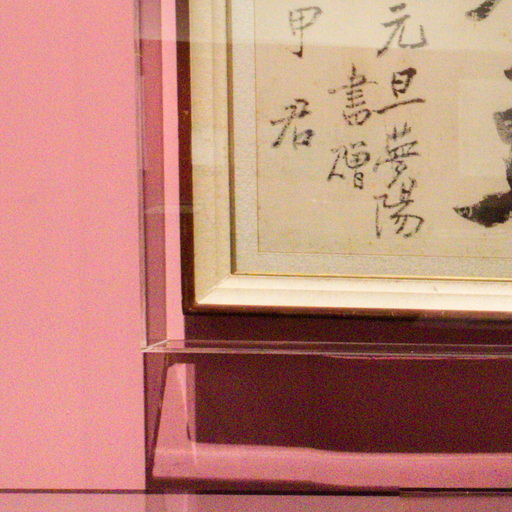 元旦夢陽
書贈
甲君